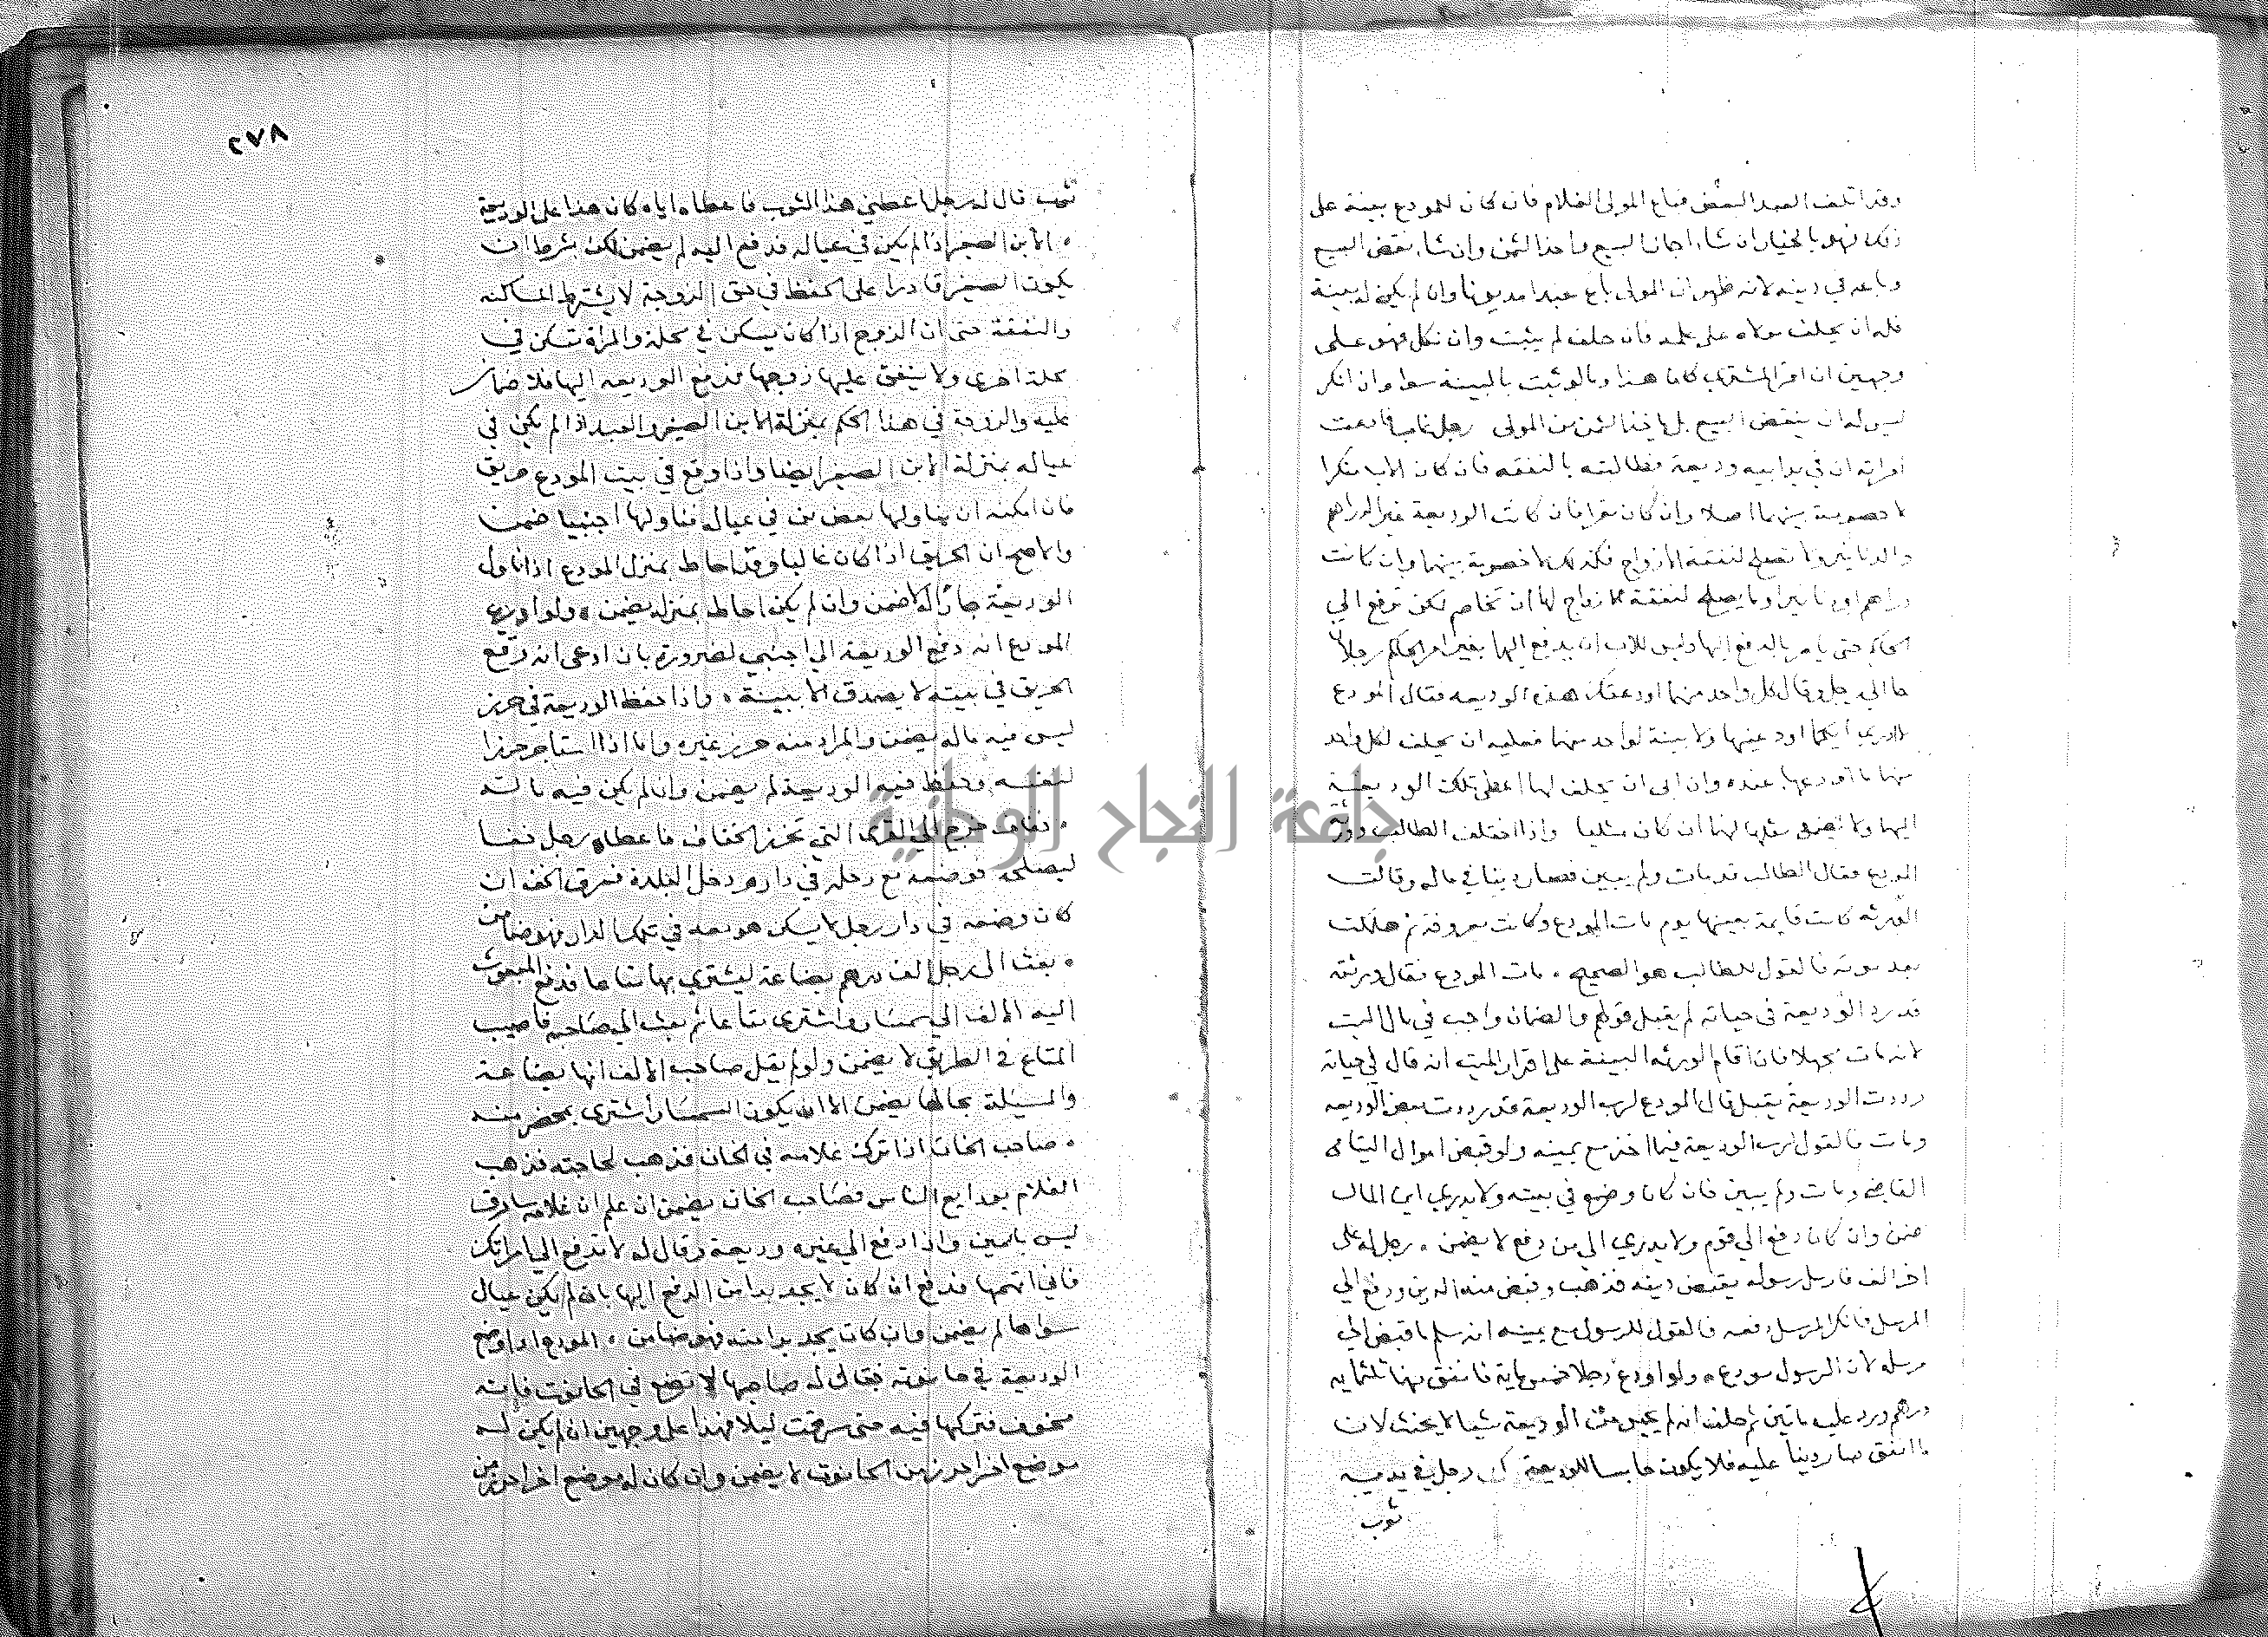 وقد اتلف العبد البعض فباع المولى الغلام فان كان للمودع بينة على
ذلك فهو بالخيار ان شاء اجاز البيع واخذ الثمن وان شاء نقض البيع
وباعه في دينه لانه ظهر ان المولى باع عبدا مديونا وان لم يكن له بينة
فله ان يحلف مولاه على علمه فان حلف لم يثبت وان نكل فهو على
وجهين ان اقر المشتري كان هذا وما لو ثبت بالبينة سوا وان انكر
ليس له ان ينقض البيع بل ياخذ الثمن من المولى رجل غاب فادعت
امراته ان في يد ابيه وديعة وطالبته بالنفقه فان كان الاب منكرا
لا خصومة بينهما اصلا وان كان مقرا فان كانت الوديعة غير الدراهم
والدنانير ولا تصلح لنفقة الازواج فكذلك لا خصومة بينهما وان كانت
دراهم او دنانير او ما يصلح لنفقة الازواج لها ان تخاصم لكن ترفع الي
الحاكم حتى يامر بالدفع اليها وليس للاب ان يدفع اليها بغير امر الحاكم رجلان
جا الى رجل وقال كل واحد منهما اودعتك هذه الوديعه فقال المودع
لا ادري ايكما اودعنيها ولا بينة لواحد منهما فعليه ان يحلف لكل واحد
منهما ما اودعها عنده وان ابى ان يحلف لهما اعطى تلك الوديعة
اليهما ولا يضمن مثلها لهما ان كان مثليا واذا اختلف الطالب وورثة
المودع فقال الطالب قد مات ولم يبين فصار دينا في ماله وقالت
الورثه كانت قايمة بعينها يوم مات المودع وكانت معروفة ثم هلكت
بعد موته فالقول للطالب هو الصحيح ٠ مات المودع فقال ورثته
قد رد الوديعة في حياته لم يقبل قولهم والضمان واجب في مال الميت
لانه مات مجهلا فان اقام الورثه البينة على اقرار الميت انه قال في حياته
رددت الوديعة يقبل قال المودع لرب الوديعة قد رددت بعض الوديعه
ومات فالقول لرب الوديعة فيما اخذ مع يمينه ولو قبض اموال اليتامى
القاضي ومات ولم يبين فان كان وضع في بيته ولا يدري اين المال
ضمن وان كان دفع الي قوم ولا يدري الي من دفع لا يضمن ٠ رجل له على
اخر الف فارسل رسوله يقبض دينه فذهب وقبض منه الدين ودفع الي
المرسل فانكر المرسل دفعه فالقول للرسول مع يمينه انه سلم ما قبض الي
مرسله لان الرسول مودع ٠ ولو اودع رجلا خمسماية فانفق منها ثلثماية
درهم ورد عليه ماتين ثم حلف انه لم يحبس من الوديعة شيا لا يحنث لان
ما انفق صار دينا عليه فلا يكون حابسا للوديعة رجل في يديه
ثوب
٢٧٨
ثوب قال له رجل اعطني هذا الثوب فاعطاه اياه كان هذا على الوديعة
٠ الابن الصغير اذا لم يكن في عياله فدفع اليه لم يضمن لكن بشرط ان
يكون الصغير قادرا على الحفظ في حق الزوجة لا يشترط المساكنه
والنفقة حتى ان الزوج اذا كان يسكن في محلة والمراة تسكن في
محلة اخرى ولا ينفق عليها زوجها فدفع الوديعه اليها فلا ضمان
عليه والزوجة في هذا الحكم بمنزلة الابن الصغير والعبد اذا لم يكن في
عياله بمنزلة الابن الصغير ايضا واذا وقع في بيت المودع حريق
فان امكنه ان يناولها بعض من في عياله فناولها اجنبيا ضمن
والاصح ان الحريق اذا كان غالبا وقد احاط بمنزل المودع اذا ناول
الوديعة جاز له لا ضمن وان لم يكن احاط بمنزله يضمن ٠ ولو اودع
المودع انه دفع الوديعة الي اجنبي لضرورة بان ادعى انه وقع
الحريق في بيته لا يصدق الا ببينة ٠ واذا حفظ الوديعة في حرز
ليس فيه ماله يضمن والمراد منه حرز غيره واما اذا استاجر حرزا
لنفسه وحفظ فيه الوديعة لم يضمن وان لم يكن فيه ماله
٠ خفاف خرج الي القرى التي تخرز الخفاف فاعطاه رجل خفا
ليصلحه فوضعه مع رحله في داره ودخل البلدة فسرق الخف ان
كان وضعه في دار رجل لا يسكن هو معه في تلك الدار فهو ضامن
٠ بعث الى رجل الف درهم بضاعة ليشتري بها متاعا فدفع المبعوث
اليه الالف الي سمسار واشترى متاعا ثم بعث الي صاحبه فاصيب
المتاع في الطريق لا يضمن ولو لم يقل صاحب الالف انها بضاعة
والمسئلة بحالها يضمن الا ان يكون السمسار اشترى بمحضر منه
٠ صاحب الخان اذا ترك غلامه في الخان فذهب لحاجته فذهب
الغلام بودايع الناس فصاحب الخان يضمن ان علم ان غلامه سارق
ليس بامين واذا دفع الي غيره وديعة وقال له لا تدفع الي امراتك
فاني اتهمها فدفع ان كان لا يجد بدا من الدفع اليها بان لم يكن عيال
سواها لم يضمن وان كان يجد بدا منه فهو ضامن ٠ المودع اذا وضع
الوديعة في حانوته فقال له صاحبها لا تضع في الحانوت فانه
مخوف فتركها فيه حتى سرقت ليلا فهذا على وجهين ان لم يكن له
موضع اخر احرز من الحانوت لا يضمن وان كان له موضع اخر احرز من
جامعة النجاح الوطنية